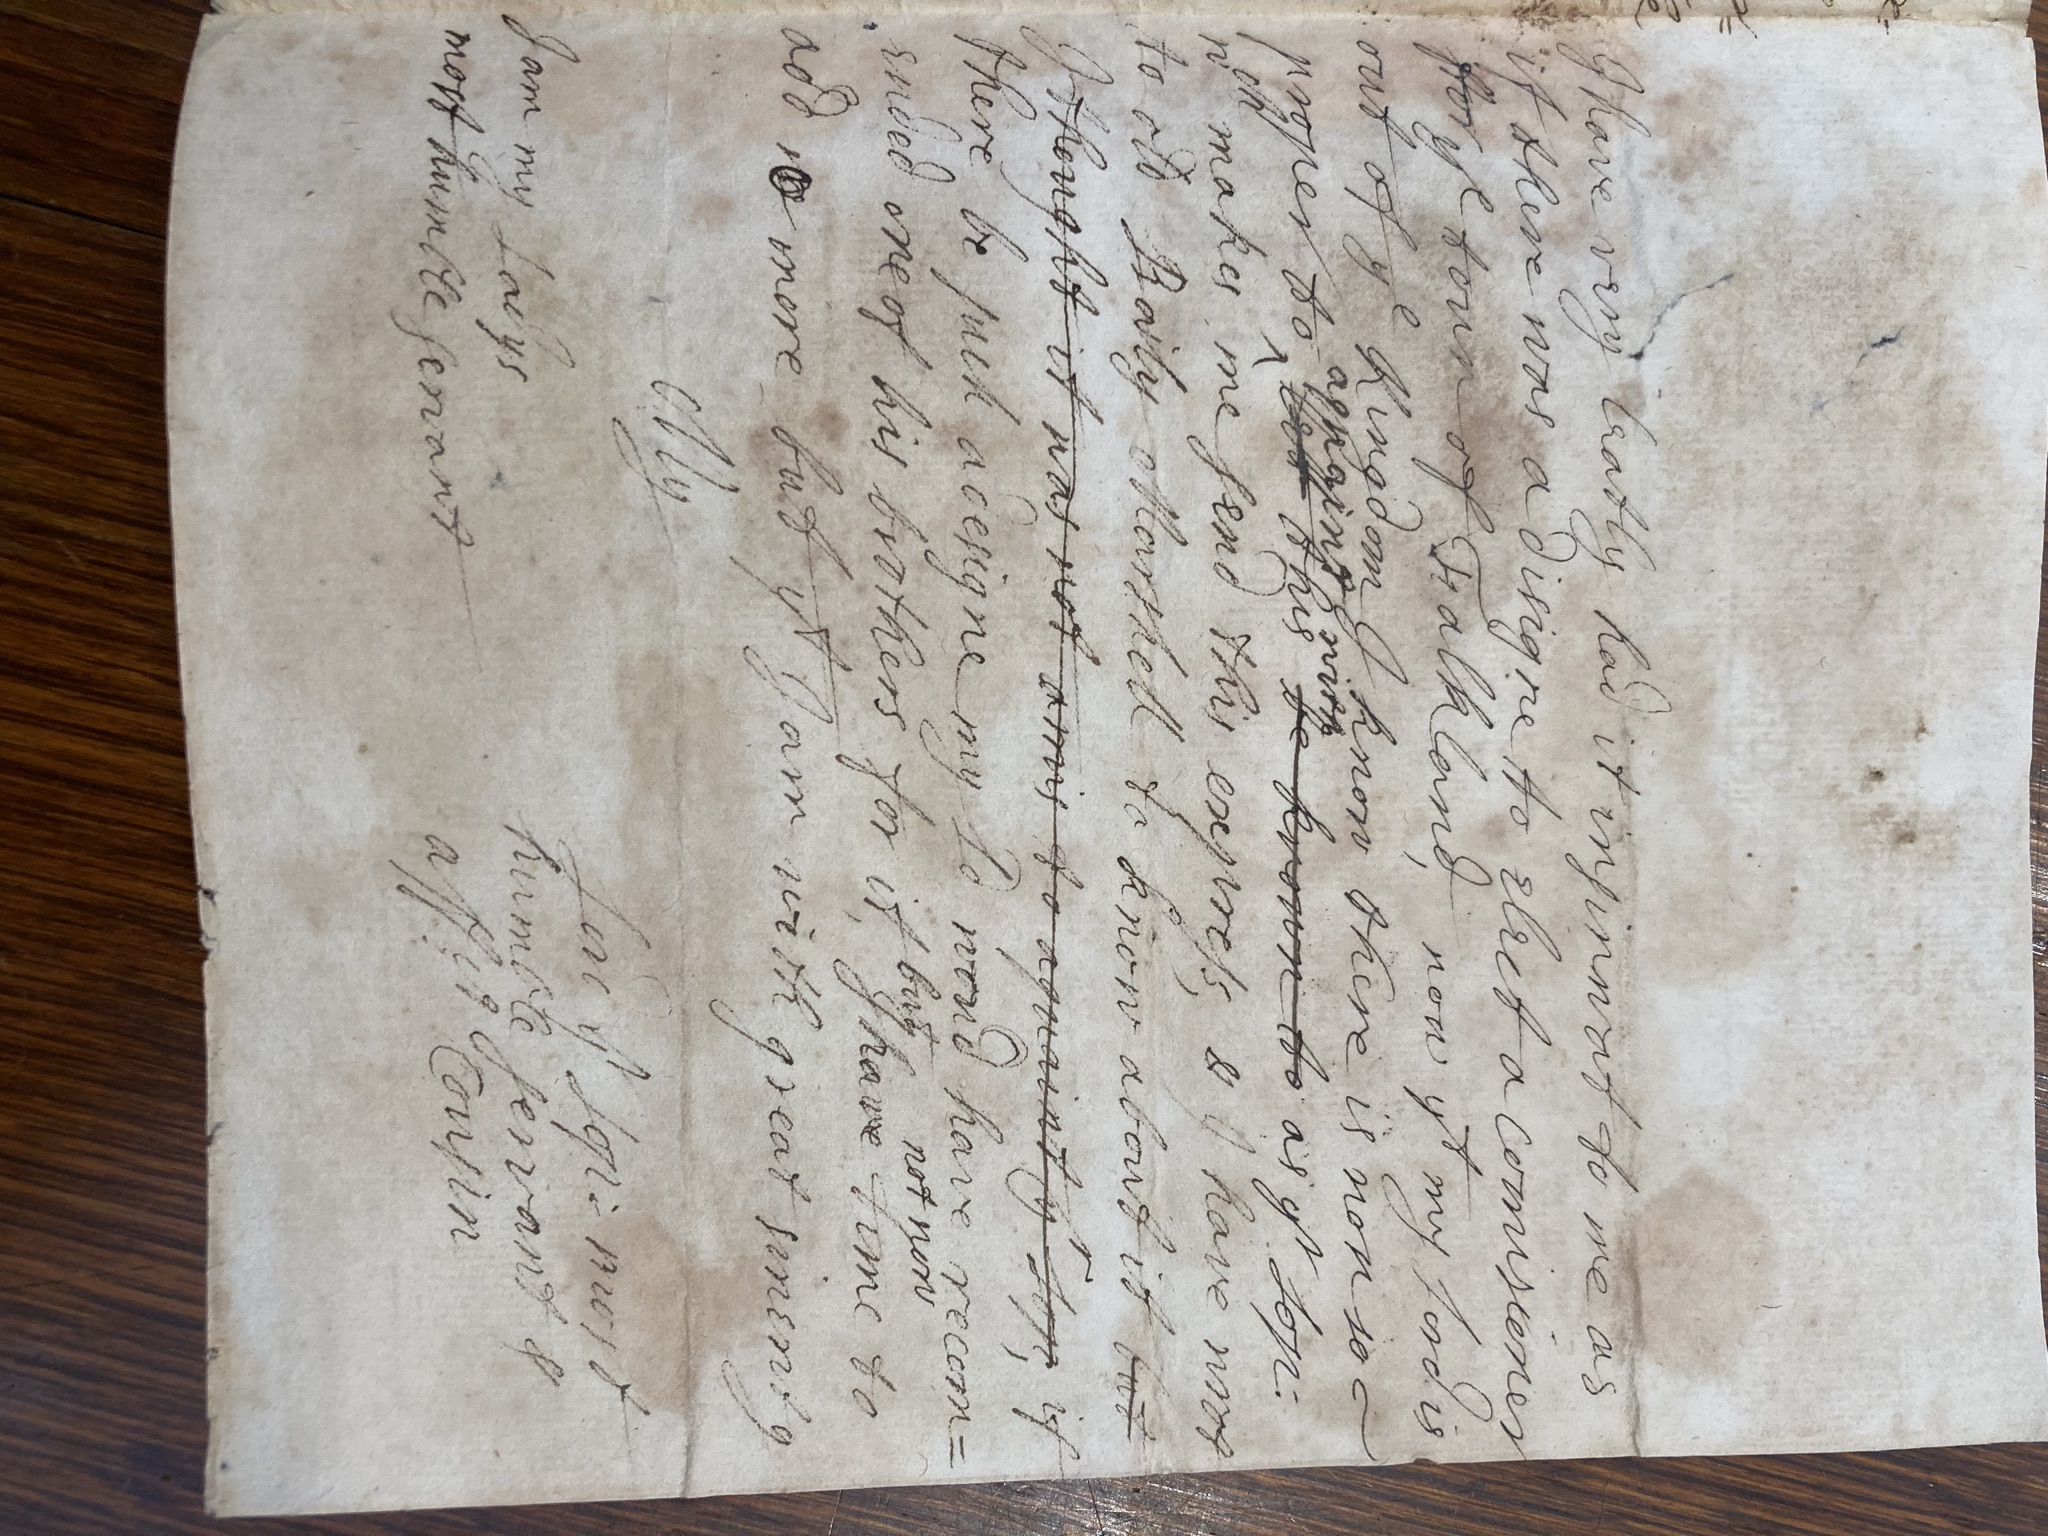 I have very leatly had it insinuat to me as
if there was a disigne to elect a comisioner
ffor ye toun of Falkland, now yt my Lord is
out of ye Kingdom I know there is non so
aquaint with
proper to ^ lett this be known to as yr Lop:
wch makes me send this express, & I have wrot
to old Baily Marshell to know about it but
I thought it was not amis to aquaint yr Lop, if
there be such a designe my Ld woud have recom=
but not now
ended one of his brothers for it, I have time to
add no more but yt I am with great sinerity
My
Lord yr Lop: most
humble servant &
affct Cousin
I am my Ladys
most humble servant